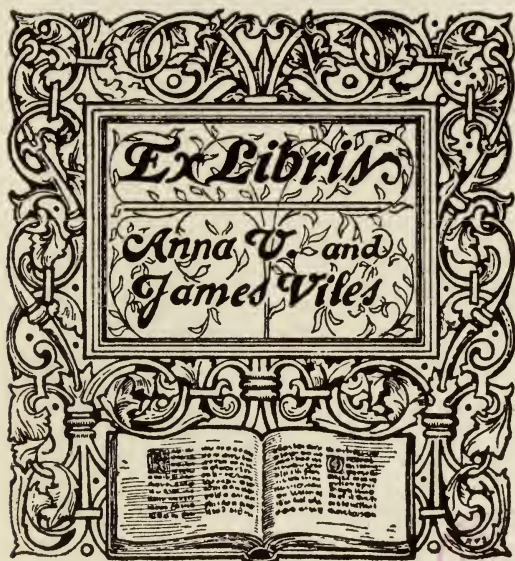 Ex Libris
Anna V. and
James Viles